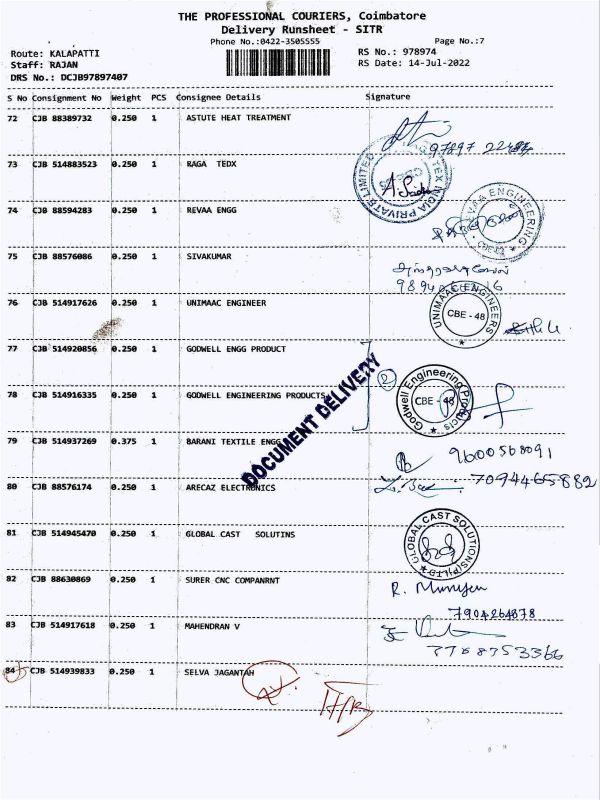 THE PROFESSIONAL COURIERS, Coimbatore
Delivery Runsheet - SITR
Phone No.:0422-3505555 Page No.:7
Route: KALAPATTI RS No.: 978974
Staff: RAJAN RS Date: 14-Jul-2022
DRS No.: DCJB97897407
S No Consignment No Weight PCS Consignee Details Signature
72 CJB 88389732 0.250 1 ASTUTE HEAT TREATMENT
73 CJB 514883523 0.250 1 RAGA TEDX
TEX INDIA PRIVATE LIMITED
74 CJB 88594283 0.250 1 REVAA ENGG
REVAA ENGINEERING
75 CJB 88576086 0.250 1 SIVAKUMAR
76 CJB 514917626 0.250 1 UNIMAAC ENGINEER
UNIMAAC ENGINEERS
CBE - 48
77 CJB 514920856 0.250 1 GODWELL ENGG PRODUCT
DOCUMENT DELIVERY
2
78 CJB 514916335 0.250 1 GODWELL ENGINEERING PRODUCTS
Godwell Engineering Products
CBE - 48
79 CJB 514937269 0.375 1 BARANI TEXTILE ENGG
9600568091
80 CJB 88576174 0.250 1 ARECAZ ELECTRONICS
7094465882
81 CJB 514945470 0.250 1 GLOBAL CAST SOLUTINS
GLOBAL CAST SOLUTIONS(P)LTD
82 CJB 88630869 0.250 1 SURER CNC COMPANRNT
83 CJB 514917618 0.250 1 MAHENDRAN V
84 CJB 514939833 0.250 1 SELVA JAGANTAH